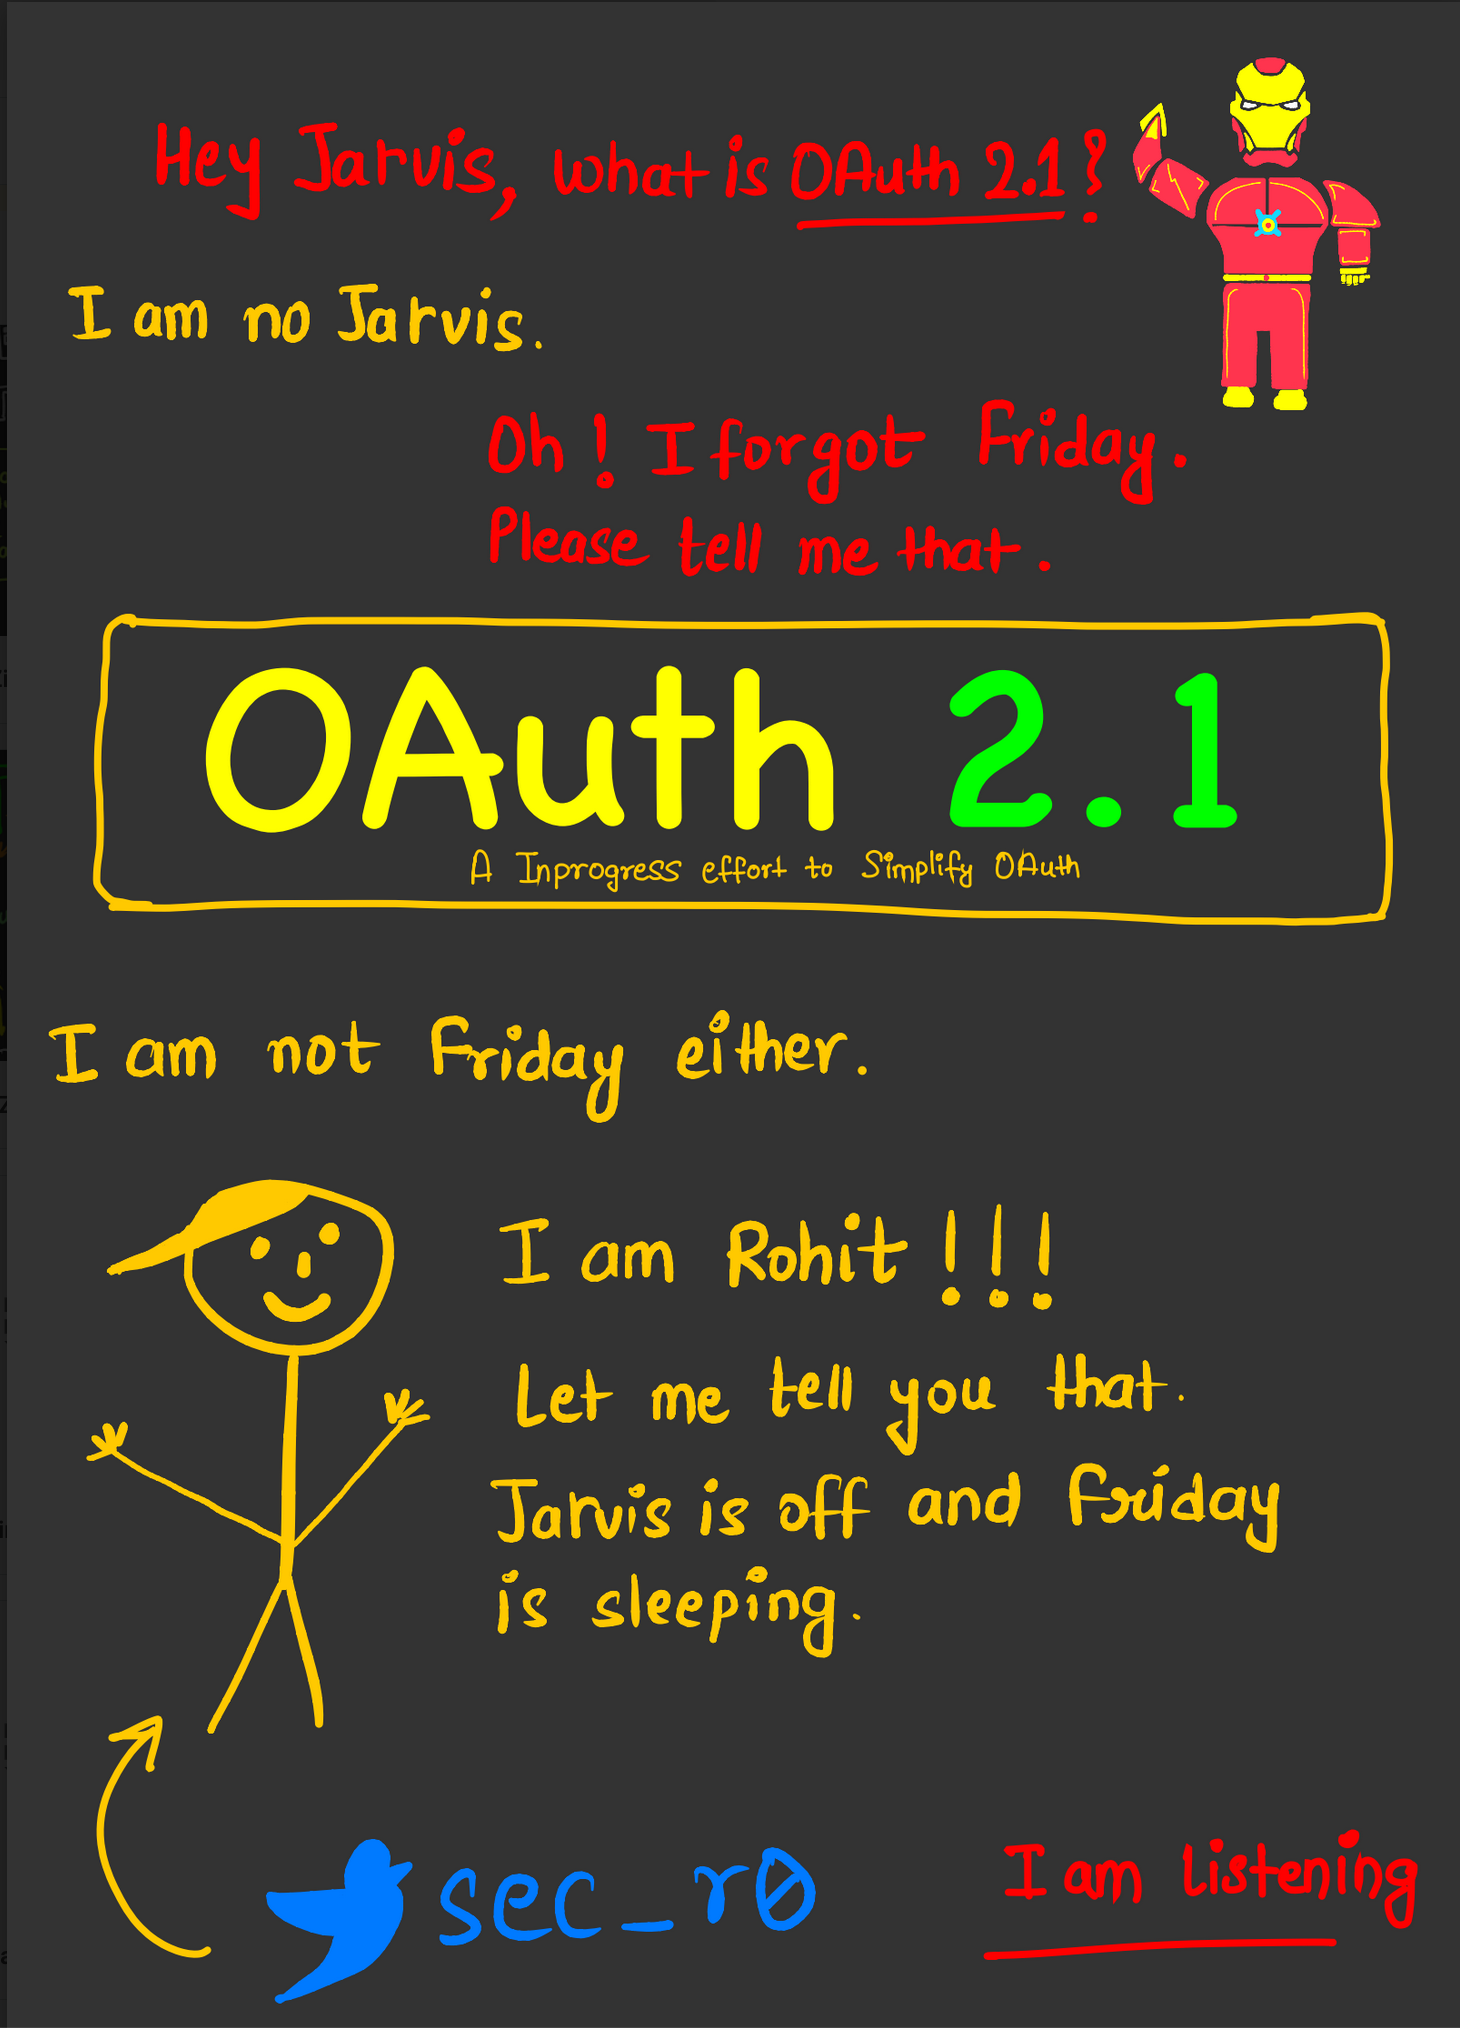 Hey Jarvis, what is OAuth 2.1?
I am no Jarvis.
Oh! I forgot Friday.
Please tell me that.
OAuth 2.1
A Inprogress effort to Simplify OAuth
I am not Friday either.
I am Rohit !!!
Let me tell you that.
Jarvis is off and Friday
is sleeping.
sec_r0
I am listening